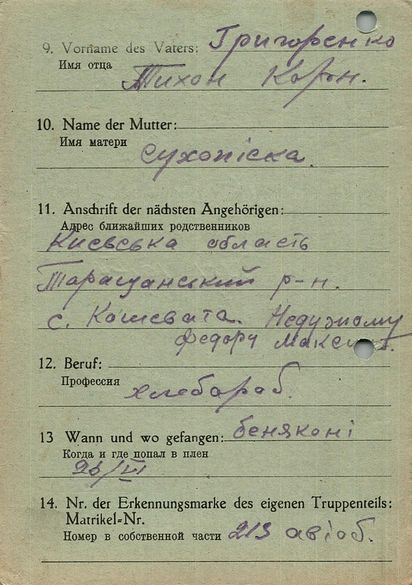 9. Vorname des Vaters: Григоренко
Имя отца
Тихон Корон.
10. Name der Mutter:
Имя матери
Сухопіска.
11. Anschrift der nächsten Angehörigen:
Адрес ближайших родственников
Києвська область
Таращанський р-н.
с. Кошевата. Недужному
Федору Максим.
12. Beruf:
Профессия
хлебораб.
13 Wann und wo gefangen: Беняконі
Когда и где попал в плен
26/VI
14. Nr. der Erkennungsmarke des eigenen Truppenteils:
Matrikel-Nr.
Номер в собственной части 213 авіоб.